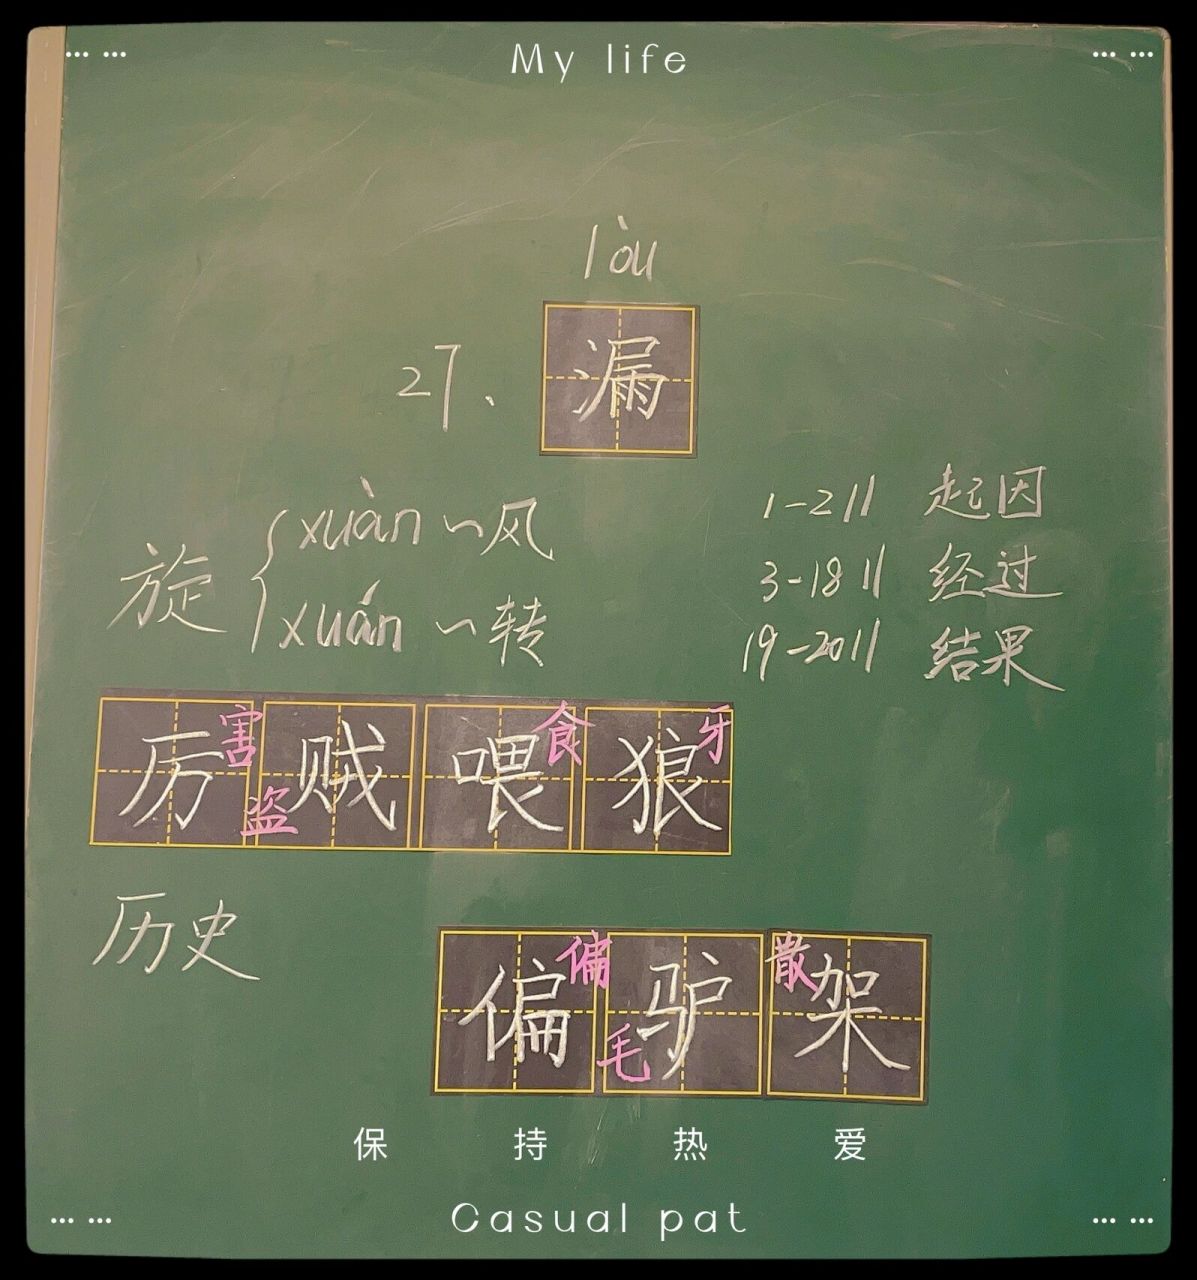 … … My life … …
lòu
27、漏
旋 { xuàn ~风
xuán ~转
1-2 // 起因
3-18 // 经过
19-20 // 结果
厉害 盗贼 喂食 狼牙
历史
偏偏 毛驴 散架
保 持 热 爱
… … Casual pat … …